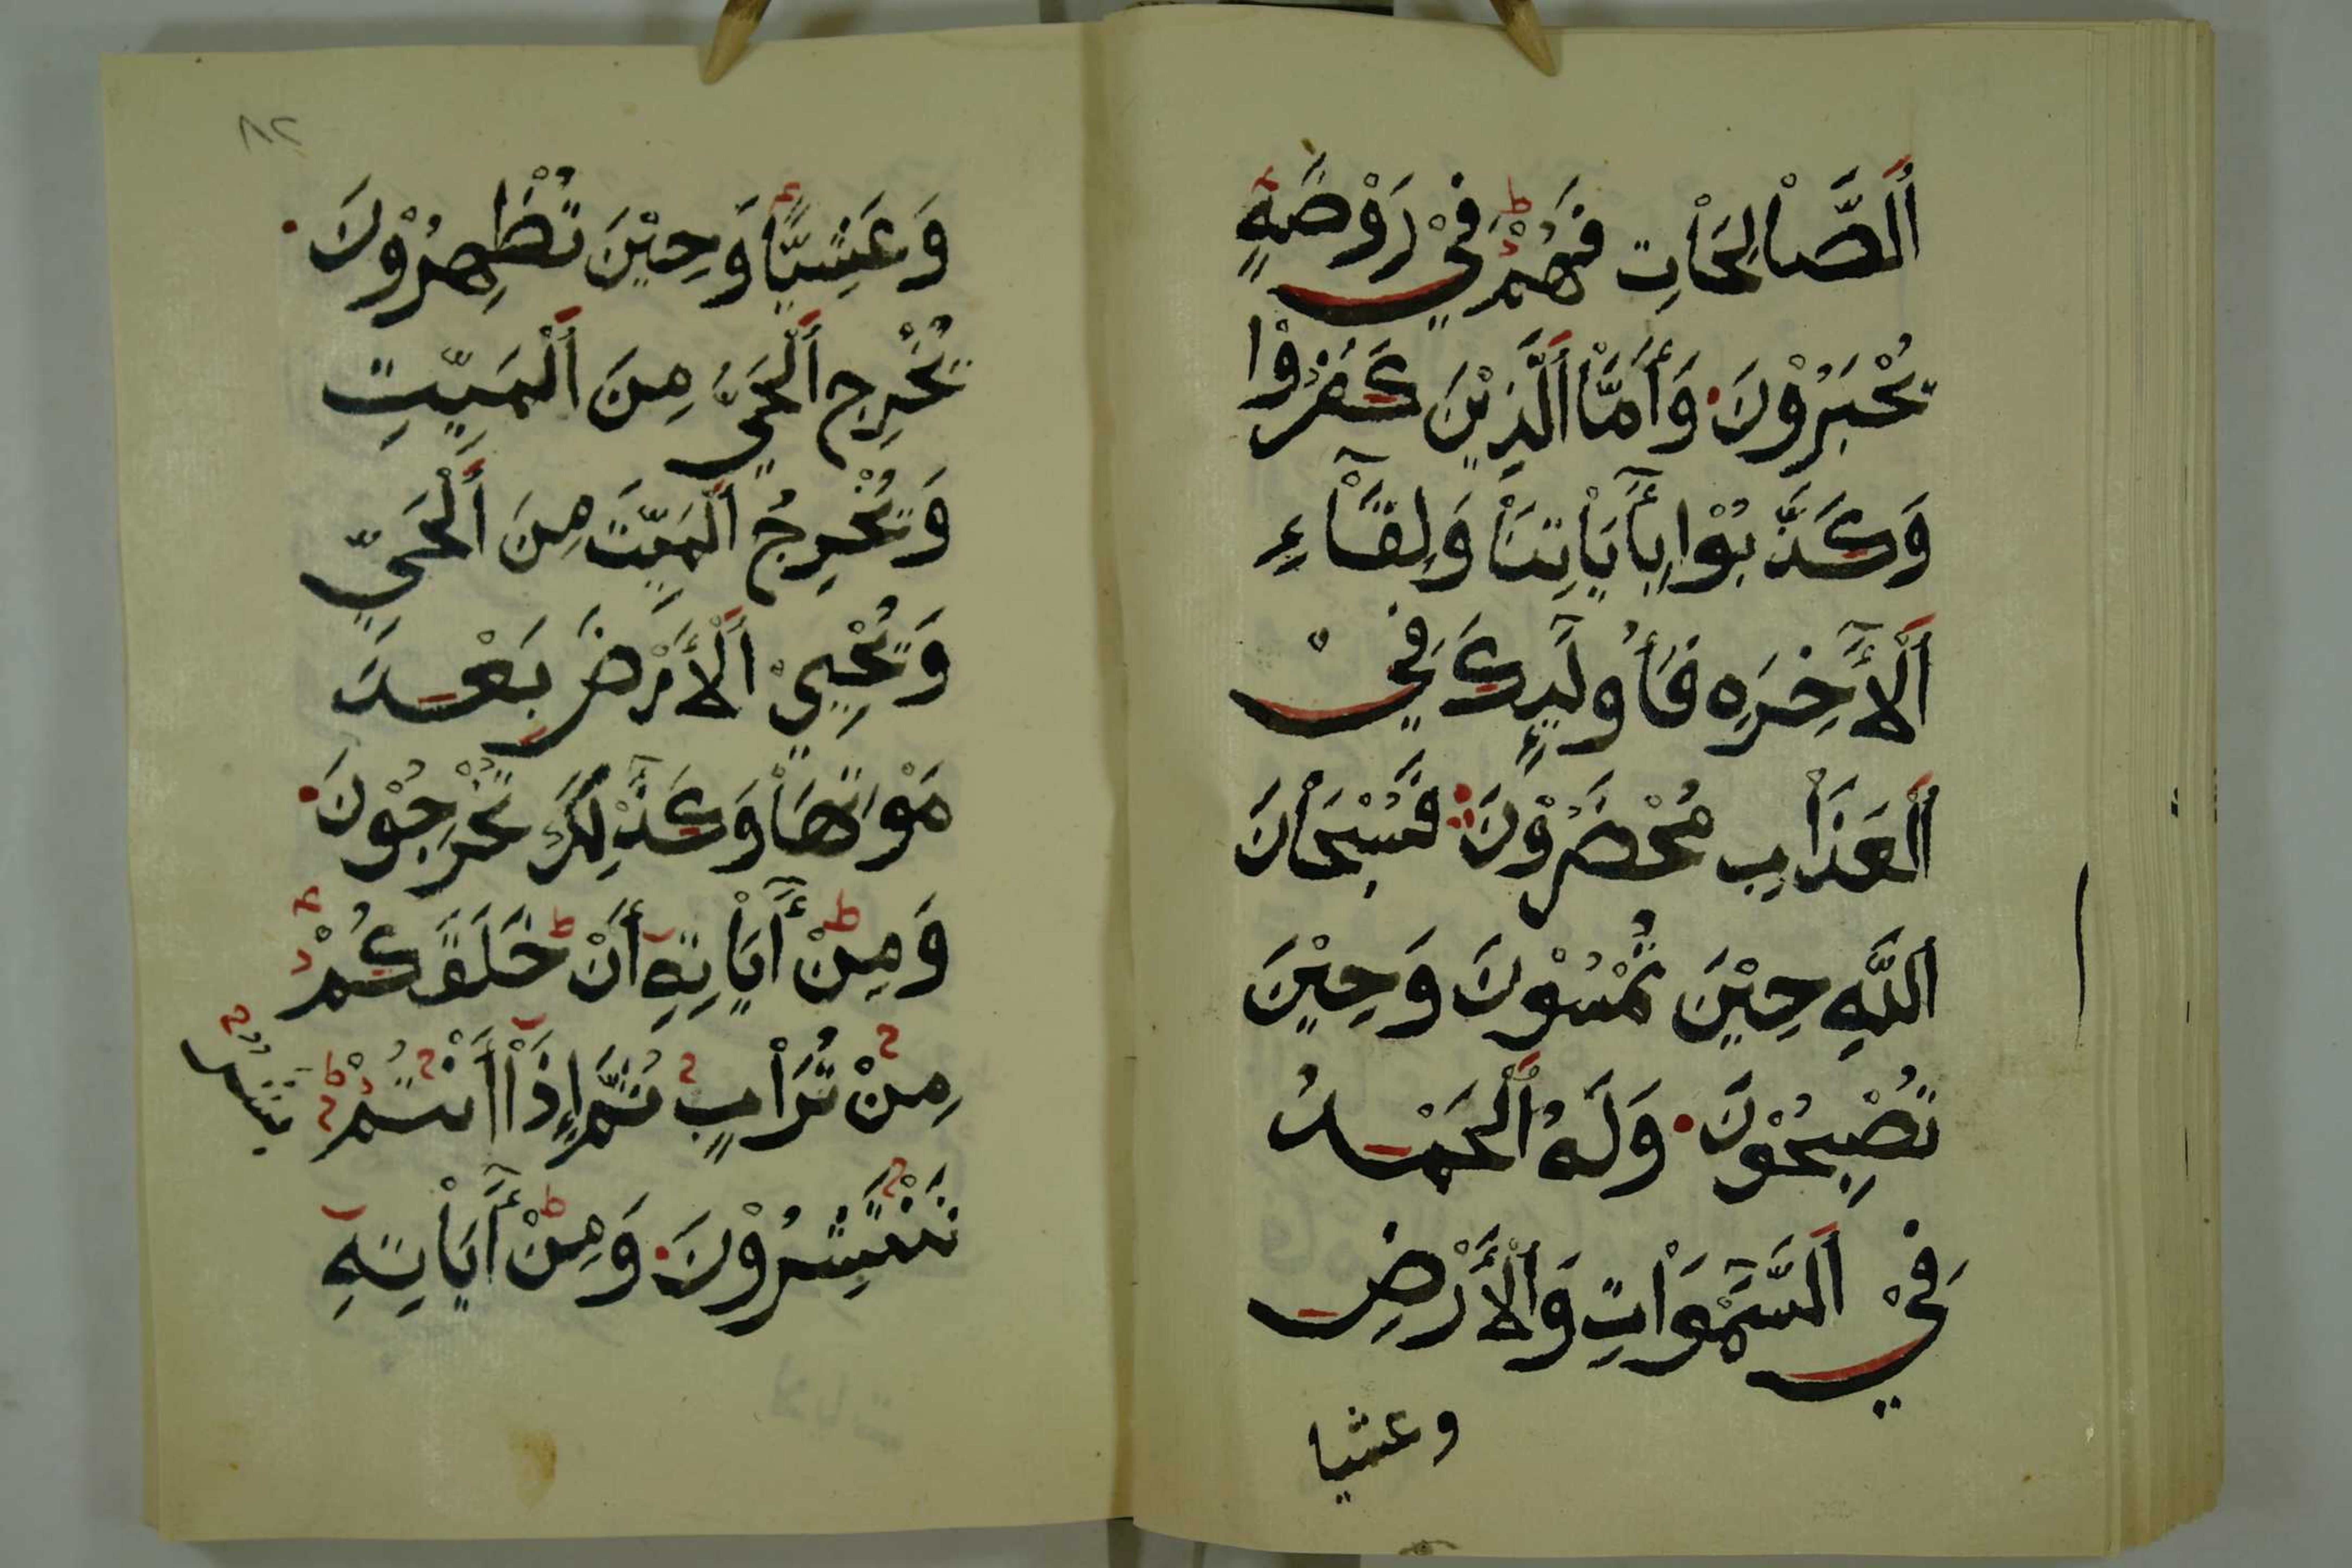 اَلصَّاْلِحَاْتِ فَهُمْ فِيْ رَوْضَةٍ
يُحْبَرُوْنَ وَأَمَّاْ اَلَّذِيْنَ كَفَرُوْا
وَكَذَّبُوْا بِأَيَاْتِنَاْ وَلِقَاْءِ
اَلْأَخِرَهِ فَأُولَيِٕكَ فِيْ
اَلْعَذَاْبِ مُحْضَرُوْنَ فَسُبْحَاْنَ
اللَّهِ حِيْنَ تُمْسُوْنَ وَحِيْنَ
تُصْبِحُوْنَ وَلَهُ اَلْحَمْدُ
فِيْ اَلسَّمَوَاْتِ وَاَلْأَرْضِ
وعشيا
٨٢
وَعَشِيًّا وَحِيْنَ تُظْهِرُوْنَ
يُخْرِجُ اَلْحَيَّ مِنَ اَلْمَيِّتِ
وَيُخْرِجُ اَلْمَيِّتَ مِنَ اَلْحَيِّ
وَيُحْيِيْ اَلْأَرْضَ بَعْدَ
مَوْتِهَاْ وَكَذَلِكَ تُخْرَجُوْنَ
وَمِنْ أَيَاْتِهِ أَنْ خَلَقَكُمْ
مِنْ تُرَاْبٍ ثُمَّ إِذَاْ أَنْتُمْ بَشَرٌ
تَنْتَشِرُوْنَ وَمِنْ أَيَاْتِهِ